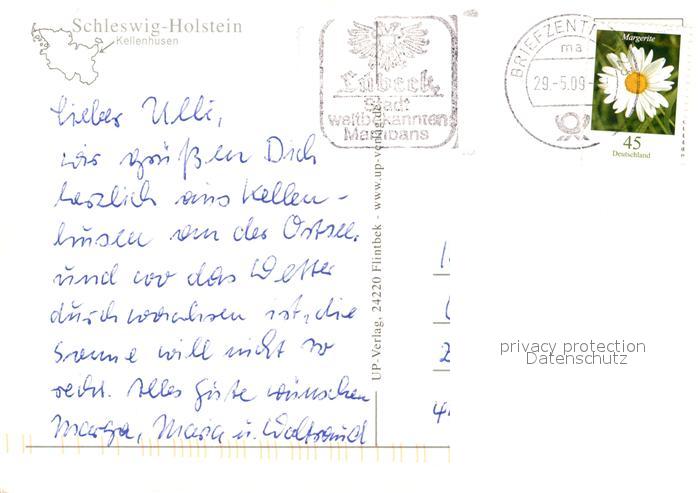 Schleswig-Holstein
Kellenhusen
Lübeck
Stadt
weltbekannten
Marzipans
BRIEFZENTR
ma
29.-5.09
Margerite
45
Deutschland
lieber Ulli,
wir grüßen Dich
herzlich aus Kellen-
husen an der Ostsee.
und wo das Wetter
durchwachsen ist, die
Sonne will nicht so
recht. Alles Gute wünschen
Marga, Maria u. Waltraud
UP-Verlag, 24220 Flintbek - www.up-verlag.de
privacy protection
Datenschutz